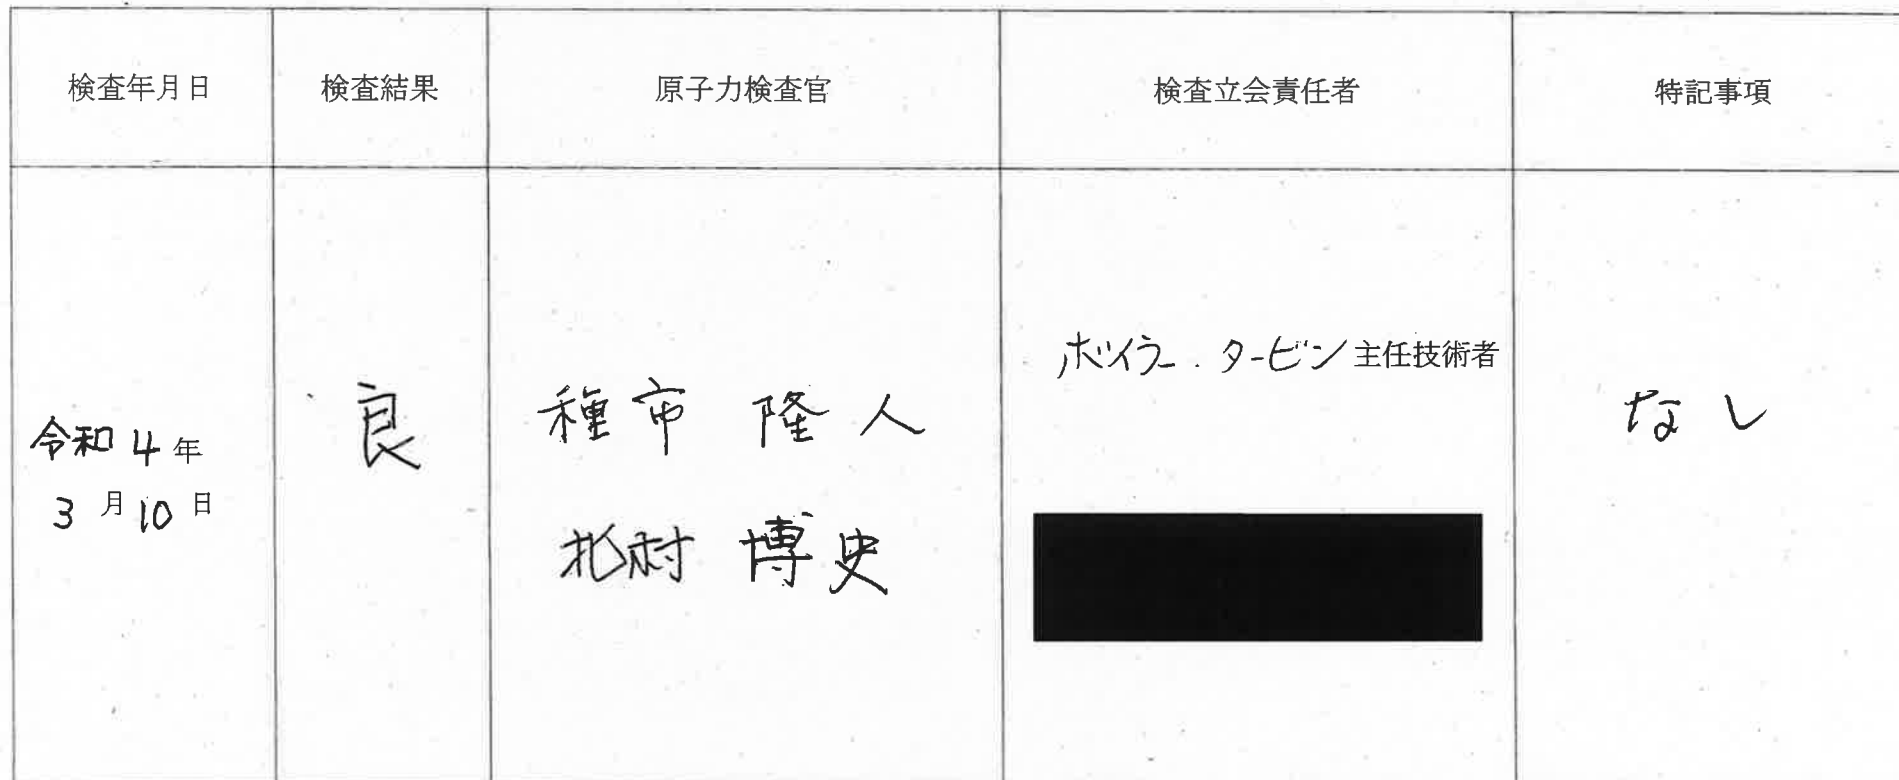 検査年月日 検査結果 原子力検査官 検査立会責任者 特記事項
令和4年
3月10日
良
種市 隆人
北村 博史
ボイラー・タービン主任技術者
なし